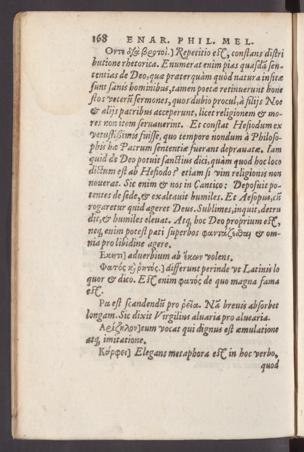 168 ENAR. PHIL. MEL.
Repetitio est, constans distri
butione rhetorica. Enumerat enim pias quasdã sen-
tentias de Deo, quæ præterquàm quòd natura insitæ
sunt sanis hominibus, tamen poetæ retinuerunt hone
stos veterũ sermones, quos dubio procul, à filijs Noe
& alijs patribus acceperunt, licet religionem & mo-
res non item seruauerint. Et constat Hesiodum ex
vetustissimis fuisse, quo tempore nondum à Philoso-
phis hæ Patrum sententiæ fuerant deprauatæ. Iam
quid de Deo potuit sanctius dici, quàm quod hoc loco
dictum est ab Hesiodo? etiam si vim religionis non
nouerat. Sic enim & nos in Cantico: Deposuit po-
tentes de sede, & exaltauit humiles. Et Aesopus, cũ
rogaretur quid ageret Deus. Sublimes, inquit, detru
dit, & humiles eleuat. Atq, hoc Deo proprium est,
neq, enim potest pati superbos & om-
nia pro libidine agere.
Εκητι) aduerbium ab volens.
Φατός κ̀ ῥητός.) differunt perinde vt Latinis lo
quor & dico. Est enim φατός de quo magna fama
est.
Ρεα est scandendũ pro ῥεῖα. Nã breuis absorbet
longam. Sic dixit Virgilius aluaria pro aluearia.
Αρίζηλον) eum vocat qui dignus est æmulatione
atq, imitatione.
Κάρφει) Elegans metaphora est in hoc verbo,
quod